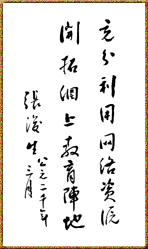 充分利用网络资源
開拓網上教育陣地
張浚生
公元二千年
三月